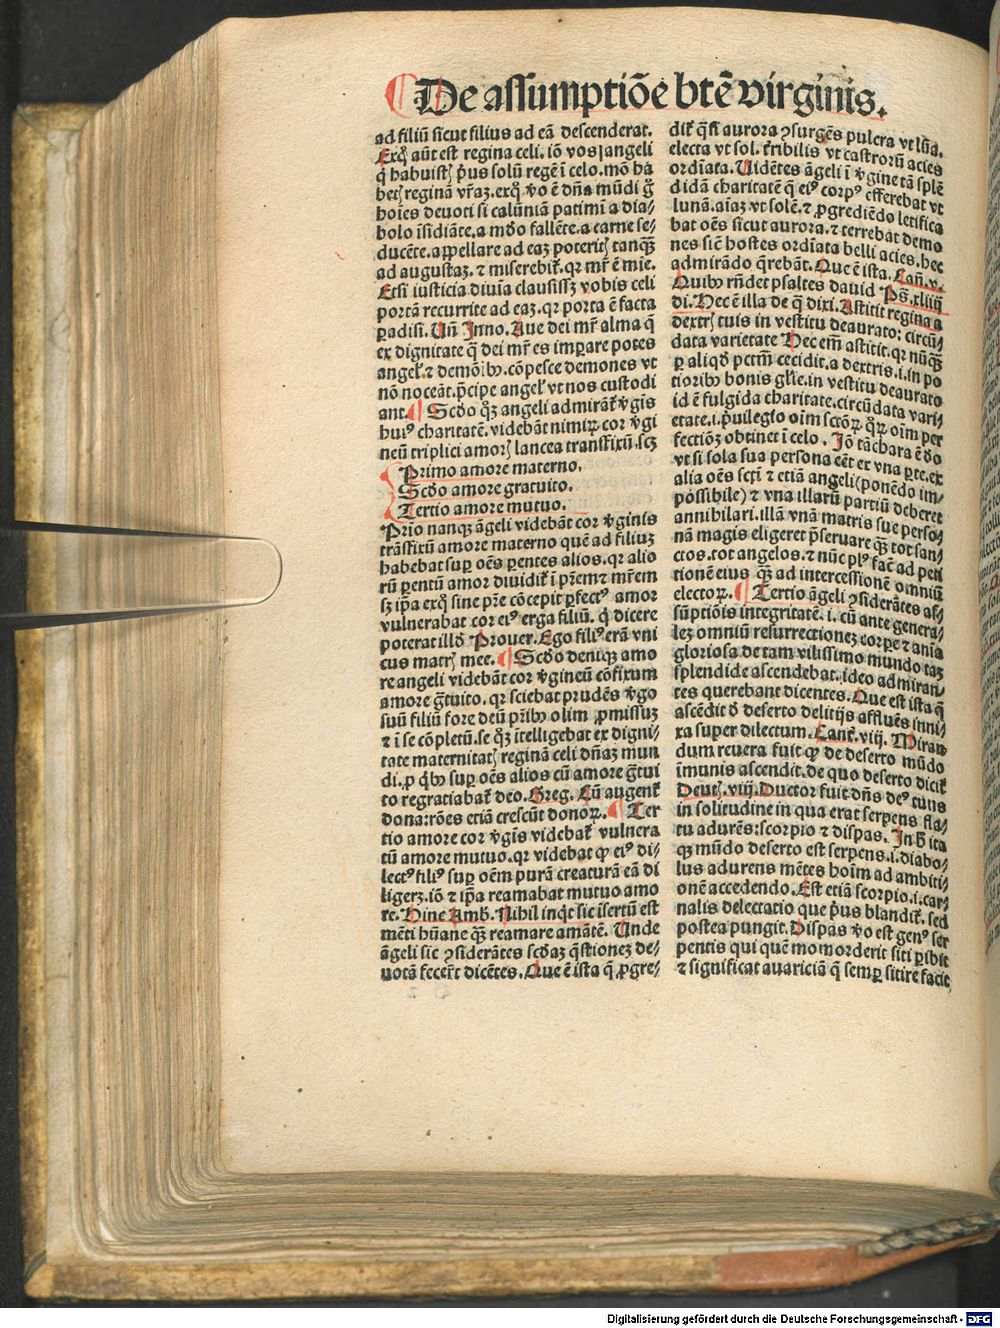 De assumptiõe btẽ virginis.
ad filiũ sicut filius ad eã descenderat.
Exq̃ aũt est regina celi. iõ vos angeli
q̃ habuistꝭ p̃us solũ regẽ ĩ celo. mõ ha
betꝭ reginã vr̃aꝫ. exq̃ v̾o ẽ dña mũdi q̃
hoĩes deuoti si calũniã patimĩ a dia⸗
bolo ĩsidiãte. a mũdo fallẽte. a carne se⸗
ducẽte. appellare ad eaꝫ poteritꝭ tanq̃ꝫ
ad augustaꝫ. ⁊ miserebit᷑. qꝛ mr̃ ẽ mie.
Etsi iusticia diuĩa clausisſꝫ vobis celi
portã recurrite ad eaꝫ. qꝛ porta ẽ facta
ꝑadisi. Uñ Inno. Aue dei mr̃ alma q̃
ex dignitate q̃ dei mr̃ es imꝑare potes
angeł. ⁊ demõibꝰ. cõpesce demones vt
nõ noceãt. p̃cipe angeł vt nos custodi
ant. ¶ Scďo qꝫ angeli admirãt᷑ v̾gĩs
huiꝰ charitatẽ. videbãt nimiꝝ cor v̾gi
neũ triplici amorꝭ lancea transfixũ. scꝫ
Primo amore materno.
Scďo amore gratuito.
Tertio amore mutuo.
Prio nanqꝫ ãgeli videbãt cor v̾ginis
trãsfixũ amore materno quẽ ad filiuꝫ
habebat suꝑ oẽs ꝑentes alios. qꝛ alio
rũ ꝑentũ amor diuidit᷑ ĩ pr̃em ⁊ mr̃em
sꝫ ip̃a exq̃ sine pr̃e cõcepit ꝑfectꝰ amor
vulnerabat cor eiꝰ erga filiũ. q̃ dicere
poterat illď Prouer. Ego filiꝰ erã vni
cus matrꝭ mee. ¶ Scďo deniqꝫ amo
re angeli videbãt cor v̾gineũ cõfixum
amore g̃tuito. qꝛ sciebat prudẽs v̾go
suũ filiũ fore deũ pr̃ibꝰ olim ꝓmissuꝫ
⁊ ĩ se cõpletũ. se qꝫ ĩtelligebat ex digni⸗
tate maternitatꝭ reginã celi dñaꝫ mun
di. ꝑ q̃bꝰ suꝑ oẽs alios cũ amore g̃tui
to regratiabat᷑ deo. Greg. Cũ augent᷑
dona: rões etiã crescũt donoꝝ. ¶ Ter
tio amore cor v̾gĩs videbat᷑ vulnera
tũ amore mutuo. qꝛ videbat ꝙ eiꝰ di⸗
lectꝰ filiꝰ suꝑ oẽm purã creaturã eã di
ligerꝫ. iõ ⁊ ip̃a reamabat mutuo amo
re. Hinc Amb. Nihil inq̃t sic ĩsertũ est
mẽti hũane q̃ꝫ reamare amãtẽ. Unde
ãgeli sic ↄsiderãtes scďaꝫ q̃stionez de⸗
uotã fecer̃t dicẽtes. Que ẽ ista q̃ ꝓgre⸗
dit᷑ q̃si aurora ↄsurgẽs pulcra vt lũa.
electa vt sol. t̾ribilis vt castrorũ acies
ordĩata. Uidẽtes ãgeli ĩ v̾gine tã splẽ
didã charitatẽ q̃ eiꝰ corpꝰ efferebat vt
lunã. aĩaꝫ vt solẽ. ⁊ ꝓgrediẽdo letifica
bat oẽs sicut aurora. ⁊ terrebat demo
nes siẽ hostes ordĩata belli acies. hec
admirãdo q̃rebãt. Que ẽ ista. Cañ. v.
Quibꝰ rñdet psaltes dauid Ps̃. xliiij
di. Hec ẽ illa de q̃ dixi. Astitit regina a
dextrꝭ tuis in vestitu deaurato: circũ⸗
data varietate Hec em̃ astitit. qꝛ nũq̃ꝫ
ꝑ aliqď pctm̃ cecidit. a dextris. i. in po
tioribꝰ bonis gl̃ie. in vestitu deaurato
id ẽ fulgida charitate. circũdata vari⸗
etate. i. p̃uilegio oĩm sctõꝝ q̃ꝝ oĩm per
fectiõꝫ obtinet ĩ celo. Iõ tã chara ẽ deo
vt si sola sua persona eẽt ex vna ꝑte. ex
alia oẽs sctĩ ⁊ etiã angeli (ponẽdo im⸗
põssibile) ⁊ vna illarũ partiũ deberet
annihilari. illã vnã matris sue perso⸗
nã magis eligeret p̃seruare q̃ꝫ tot san⸗
ctos. tot angelos. ⁊ nũc plꝰ facẽ ad peti
tionẽ eius q̃ꝫ ad intercessionẽ omniũ
electoꝝ. ¶ Tertio ãgeli ↄsiderãtes as⸗
sũptiõis integritatẽ. i. cũ ante genera⸗
leꝫ omniũ resurrectionez corpe ⁊ aĩa
gloriosa de tam vilissimo mundo taꝫ
splendide ascendebat. ideo admiran⸗
tes querebant dicentes. Que est ista q̃
ascẽdit ď deserto delitijs affluẽs inni⸗
xa super dilectum. Cant᷑. viij. Miran
dum reuera fuit ꝙ de deserto mũdo
ĩmunis ascendit. de quo deserto dicit᷑
Deutꝭ. viij. Ductor fuit dñs deꝰ tuus
in solitudine in qua erat serpens fla⸗
tu adurẽs: scorpio ⁊ dispas. In h̃ ita
qꝫ mũdo deserto est serpẽs. i. diabo⸗
lus adurens mẽtes hoĩm ad ambiti⸗
onẽ accedendo. Est etiã scorpio. i. car⸗
nalis delectatio que p̃us blandit᷑. sed
postea pungit. Dispas v̾o est genꝰ ser
pentis qui quẽ momorderit siti ꝑibit
⁊ significat auariciã q̃ semꝑ sitire facit
Digitalisierung gefördert durch die Deutsche Forschungsgemeinschaft - DFG